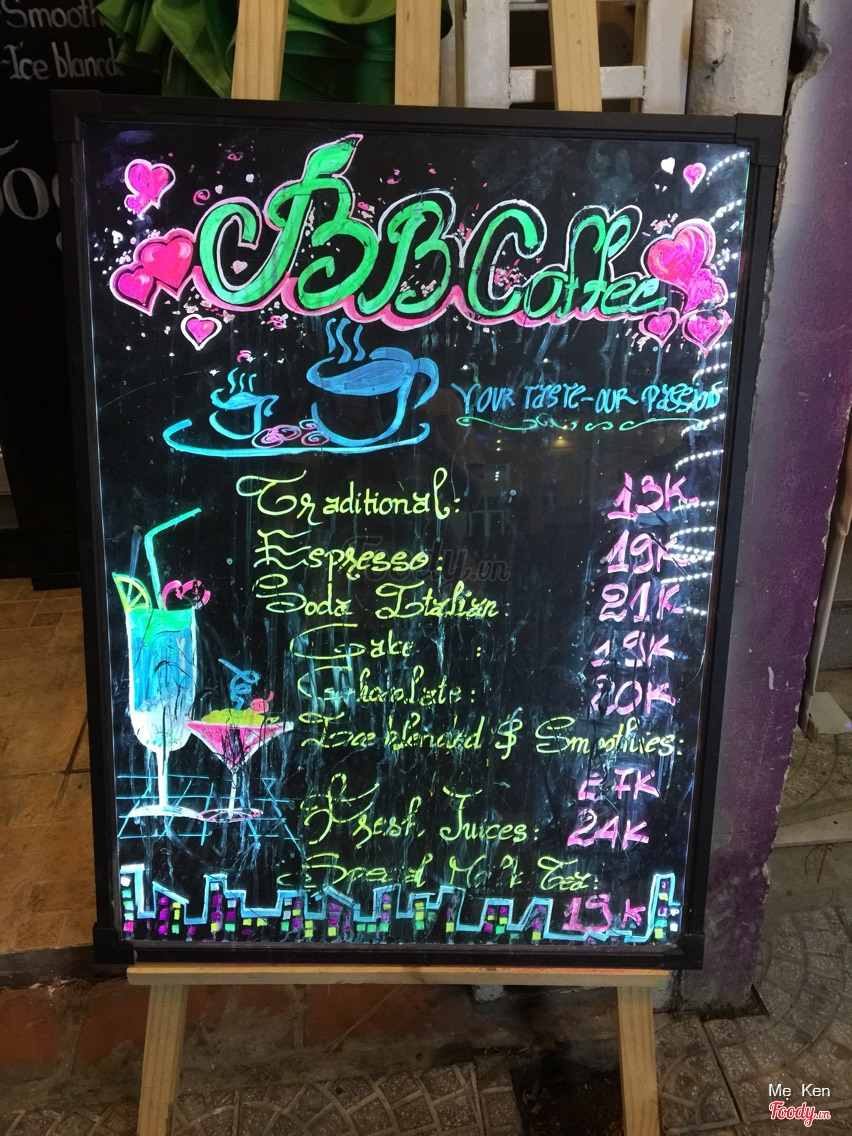 Smooth
-Ice blanded
BB Coffee
YOUR TASTE-OUR PASSION
Traditional: 13K
Espresso: 19K
Soda Italian: 21K
Cake : 19K
Chocolate: 20K
Ice blended $ Smoothies:
27K
Fresh Juices: 24K
Special Milk Tea:
19K
Foody.vn
Mẹ Ken
Foody.vn